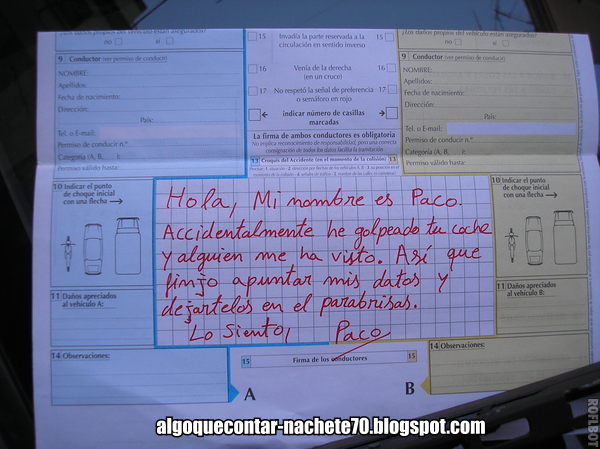 ¿Los daños propios del vehículo están asegurados?
no si
9 Conductor (ver permiso de conducir)
NOMBRE:
Apellidos:
Fecha de nacimiento:
Dirección:
País:
Tel. o E-mail:
Permiso de conducir n.º
Categoría (A, B, ):
Permiso válido hasta:
10 Indicar el punto
de choque inicial
con una flecha →
11 Daños apreciados
al vehículo A:
14 Observaciones:
15 Invadía la parte reservada a la 15
circulación en sentido inverso
16 Venía de la derecha 16
(en un cruce)
17 No respetó la señal de preferencia 17
o semáforo en rojo
← indicar número de casillas →
marcadas
La firma de ambos conductores es obligatoria
No implica reconocimiento de responsabilidad, pero una correcta
consignación de todos los datos facilita la tramitación
13 Croquis del Accidente (en el momento de la colisión) 13
Hola, Mi nombre es Paco.
Accidentalmente he golpeado tu coche
y alguien me ha visto. Así que
finjo apuntar mis datos y
dejartelos en el parabrisas.
Lo siento, Paco
15 Firma de los conductores 15
A B
¿Los daños propios del vehículo están asegurados?
no si
9 Conductor (ver permiso de conducir)
NOMBRE:
Apellidos:
Fecha de nacimiento:
Dirección:
País:
Tel. o E-mail:
Permiso de conducir n.º
Categoría (A, B, ):
Permiso válido hasta:
10 Indicar el punto
de choque inicial
con una flecha →
11 Daños apreciados
al vehículo B:
14 Observaciones:
algoquecontar-nachete70.blogspot.com
ROFLBOT